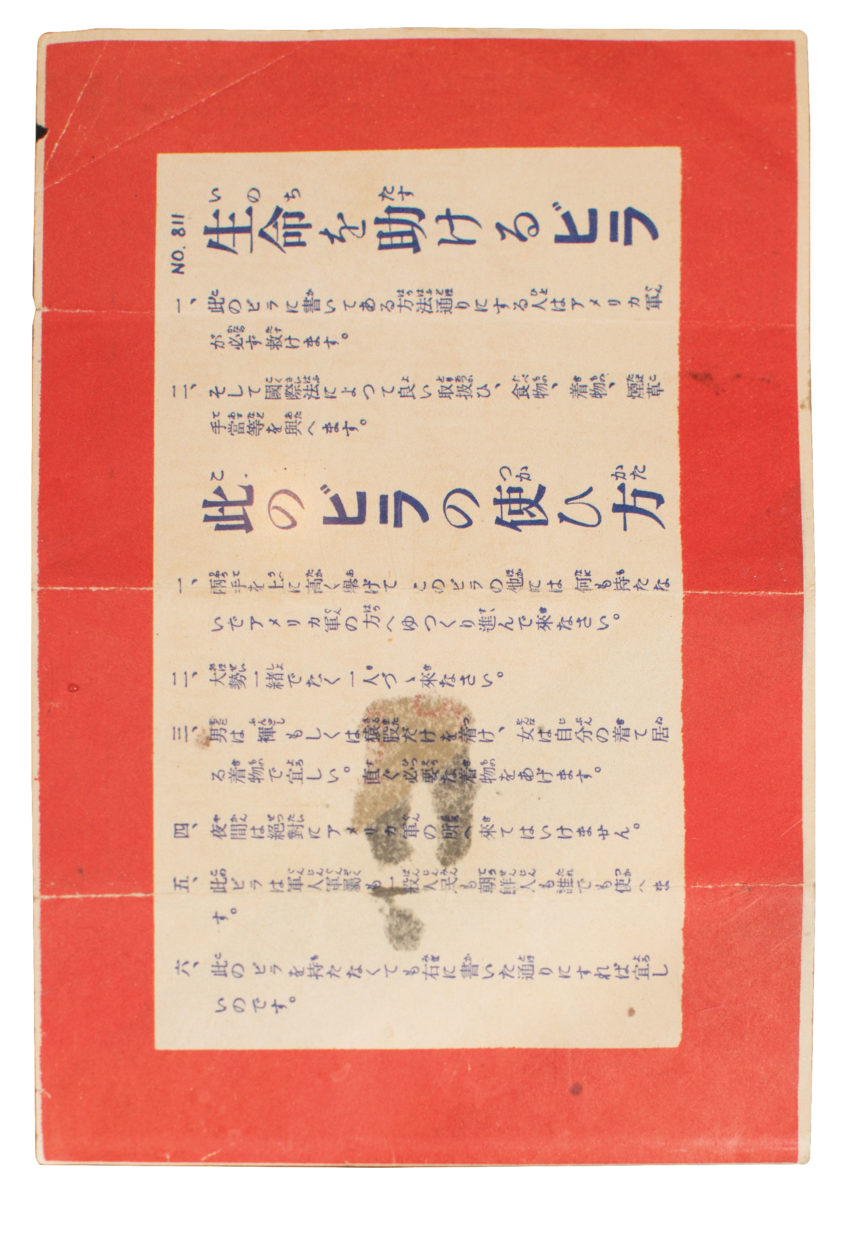 NO. 811
生命を助けるビラ
一、此のビラに書いてある方法通りにする人はアメリカ軍
が必ず救けます。
二、そして國際法によつて良い取扱ひ、食物、着物、煙草
手當等を與へます。
此のビラの使ひ方
一、兩手を上に高く擧げて このビラの他には 何も持たな
いでアメリカ軍の方へゆつくり進んで來なさい。
二、大勢一緒でなく一人づゝ來なさい。
三、男は褌もしくは猿股だけを着け、女は自分の着て居
る着物で宜しい。直ぐ必要な着物をあげます。
四、夜間は絕對にアメリカ軍の所へ來てはいけません。
五、此ビラは軍人軍屬も一般人民も朝鮮人も誰でも使へま
す。
六、此のビラを持たなくても右に書いた通りにすれば宜し
いのです。